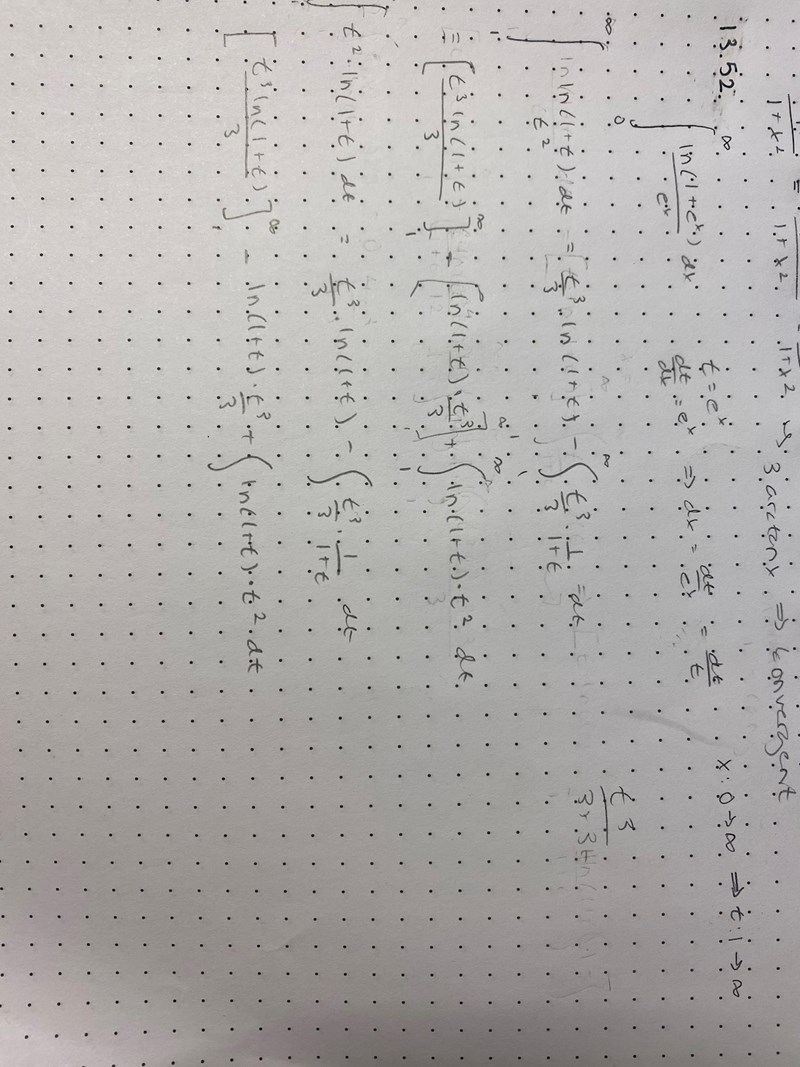 1/(1+x²) = 1+x² 1+x² → 3 arctan x ⇒ konvergent
13.52. ∫₀^∞ ln(1+eˣ)/eˣ dx t = eˣ x: 0→∞ ⇒ t: 1→∞
dt/dx = eˣ ⇒ dx = dt/eˣ = dt/t
∫₁^∞ ln(1+t)/t² dt = t³/3 · ln(1+t) - ∫ t³/3 · 1/(1+t) dt t³/3
= [t³ ln(1+t)/3]₁^∞ - [ln(1+t) · t³/3]₁^∞ + ∫₁^∞ ln(1+t) · t² dt
∫ t² · ln(1+t) dt = t³/3 · ln(1+t) - ∫ t³/3 · 1/(1+t) dt
[t³ ln(1+t)/3]₁^∞ - ln(1+t) · t³/3 + ∫ ln(1+t) · t² dt